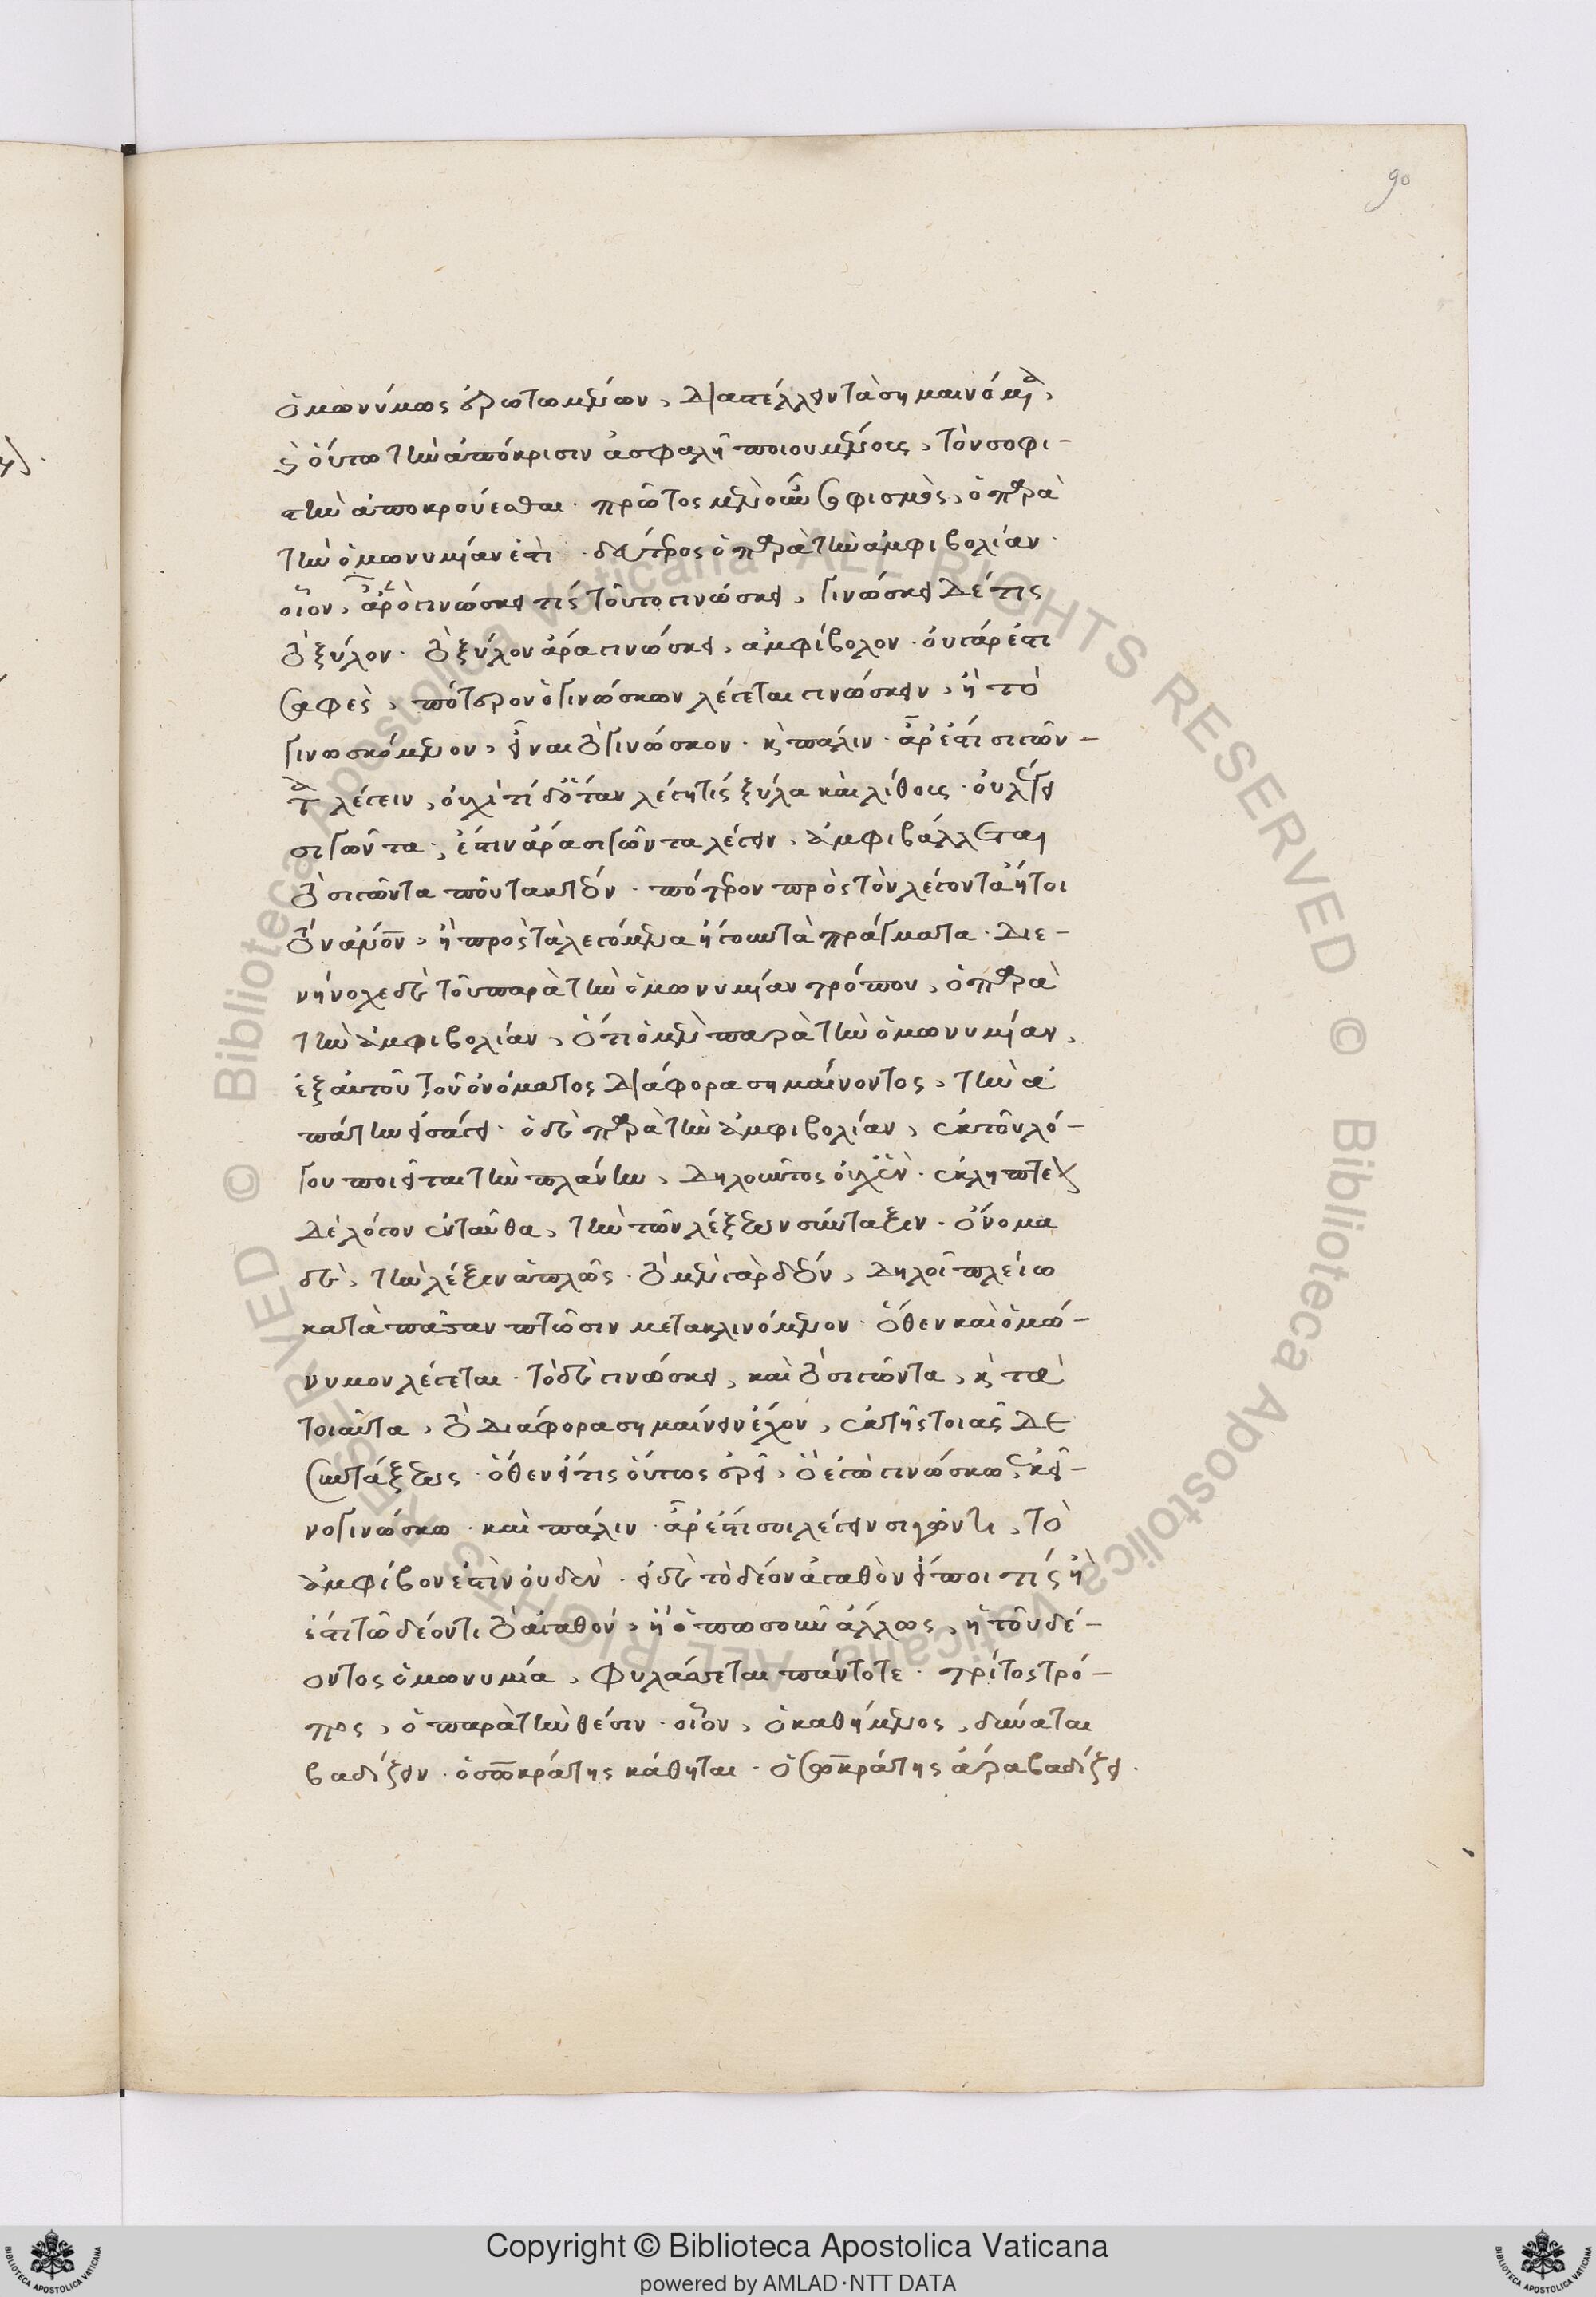 90
ὁμωνύμως ἐρωτωμένων, διαστέλλειν τὰ σημαινόμενα,
καὶ οὕτω τὴν ἀπόκρισιν ἀσφαλῆ ποιουμένους, τὸν σοφι-
στὴν ἀποκρούεσθαι. πρῶτος μὲν οὖν σοφισμὸς, ὁ παρὰ
τὴν ὁμωνυμίαν ἐστί. δεύτερος ὁ παρὰ τὴν ἀμφιβολίαν.
οἷον, ἆρ' ὃ γινώσκει τίς τοῦτο γινώσκει, γινώσκει δέ τις
τὸ ξύλον. τὸ ξύλον ἄρα γινώσκει, ἀμφίβολον. οὐ γάρ ἐστι
σαφὲς, πότερον ὁ γινώσκων λέγεται γινώσκειν, ἢ τὸ
γινωσκόμενον, εἶναι τὸ γινώσκον. καὶ πάλιν. ἆρ' ἐστί σιγῶν-
τα λέγειν, οὐχί τί δ' ὅταν λέγῃ τίς ξύλα καὶ λίθους. οὐ λέγει
σιγῶντα; ἔστιν ἄρα σιγῶντα λέγειν. ἀμφιβάλλεται
τὸ σιγῶντα ποῦ τακτέον. πότερον πρὸς τὸν λέγοντα ἤτοι
τὸν ἄνθρωπον, ἢ πρὸς τὰ λεγόμενα ἤγουν τὰ πράγματα. διε-
νήνοχε δὲ τοῦ παρὰ τὴν ὁμωνυμίαν τρόπου, ὁ παρὰ
τὴν ἀμφιβολίαν, ὅτι ὁ μὲν παρὰ τὴν ὁμωνυμίαν,
ἐξ αὐτοῦ τοῦ ὀνόματος διάφορα σημαίνοντος, τὴν ἀ
πάτην εἰσάγει. ὁ δὲ παρὰ τὴν ἀμφιβολίαν, ἐκ τοῦ λό-
γου ποιεῖται τὴν πλάνην, δηλοῦντος οὐχ ἕν. ἐκληπτέον
δὲ λόγον ἐνταῦθα, τὴν τῶν λέξεων σύνταξιν. ὄνομα
δὲ, τὴν λέξιν ἁπλῶς. τὸ μὲν γὰρ δέον, δηλοῖ πλείω
κατὰ πᾶσαν πτῶσιν μετακλινόμενον. ὅθεν καὶ ὁμώ-
νυμον λέγεται. τὸ δὲ γινώσκει, καὶ τὸ σιγῶντα, καὶ τὰ
τοιαῦτα, τὸ διάφορα σημαίνειν ἔχον, ἐκ τῆς τοιᾶς δε
συντάξεως. ὅθεν εἴ τις οὕτως ἐρεῖ, ὃ ἐγὼ γινώσκω, ἐκεῖ-
νο γινώσκω. καὶ πάλιν. ἆρ' ἐστί σοι λέγειν σιγῶντι, τὸ
ἀμφίβον ἐστὶν οὐδὲν. εἰ δὲ τὸ δέον ἀγαθὸν εἴποι τίς ἢ
ἐπὶ τῶ δέοντι τὸ ἀγαθόν, ἢ ὁπωσοῦν ἄλλως, ἡ τοῦ δέ-
οντος ὁμωνυμία, φυλάττεται πάντοτε. τρίτος τρό-
πος, ὁ παρὰ τὴν θέσιν. οἷον, ὁ καθήμενος, δύναται
βαδίζειν. ὁ σωκράτης κάθηται. ὁ σωκράτης ἄρα βαδίζει.
Copyright © Biblioteca Apostolica Vaticana
powered by AMLAD·NTT DATA
© Biblioteca Apostolica Vaticana ALL RIGHTS RESERVED © Biblioteca Apostolica Vaticana ALL RIGHTS RESERVED
BIBLIOTECA APOSTOLICA VATICANA
BIBLIOTECA APOSTOLICA VATICANA